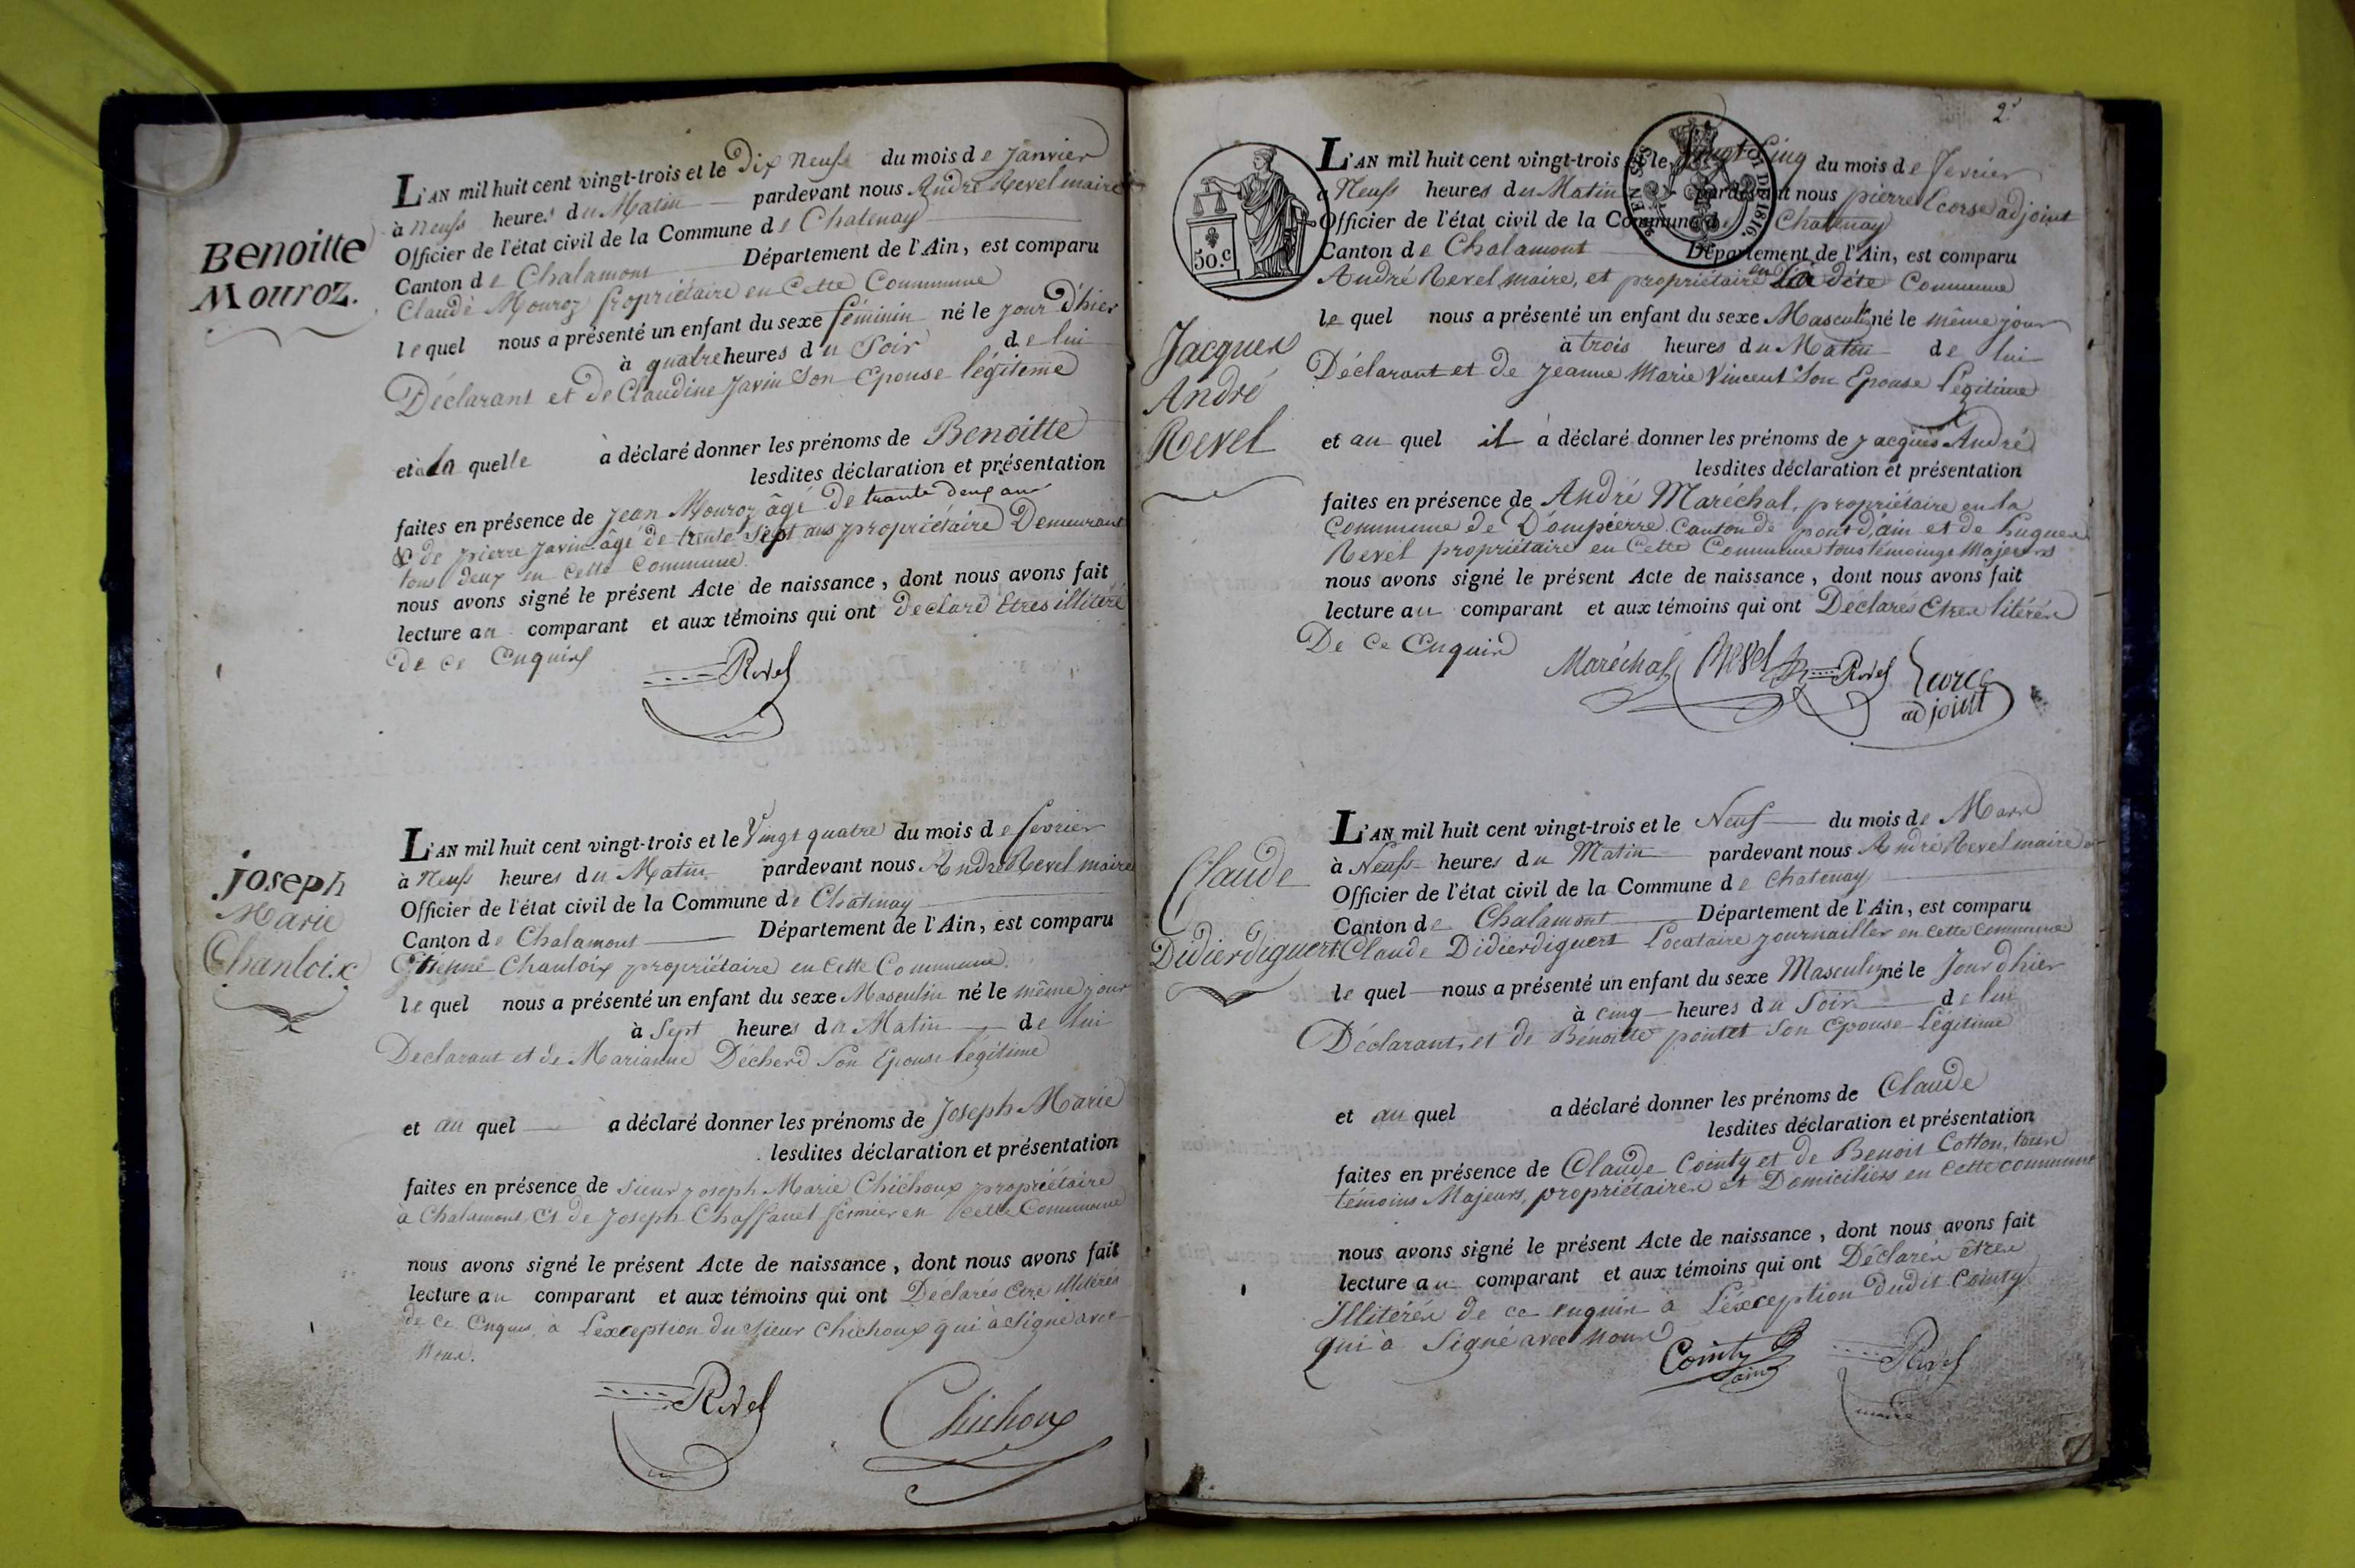 Benoitte
Mouroz.
L'AN mil huit cent vingt-trois et le Dix Neuf du mois de Janvier
à neuf heures du Matin pardevant nous André Revel maire
Officier de l'état civil de la Commune de Chatenay
Canton de Chalamont Département de l'Ain, est comparu
Claude Mouroz propriétaire en Cette Commune
lequel nous a présenté un enfant du sexe féminin né le jour D'hier
à quatre heures du Soir de lui
Déclarant et de Claudine Javin Son Epouse légiteme
et à la quelle à déclaré donner les prénoms de Benoitte
lesdites déclaration et présentation
faites en présence de Jean Mouroz âgé de trante deux ans
& de pierre Javin âgé de trente Sept ans propriétaire Demeurant
tous deux en Cette Commune.
nous avons signé le présent Acte de naissance, dont nous avons fait
lecture au comparant et aux témoins qui ont declaré Etres illitéré
de ce Enquis
Revel
joseph
Marie
Chanloix
L'AN mil huit cent vingt-trois et le Vingt quatre du mois de fevrier
à Neuf heures du Matin pardevant nous André Revel maire
Officier de l'état civil de la Commune de Chatenay
Canton de Chalamont Département de l'Ain, est comparu
Etienne Chanloix propriétaire en Cette Commune.
lequel nous a présenté un enfant du sexe Masculin né le même jour
à Sept heures du Matin de lui
Declarant et de Marianne Décherd Son Epouse légitime
et au quel a déclaré donner les prénoms de Joseph Marie
lesdites déclaration et présentation
faites en présence de Sieur Joseph Marie Chichoux propriétaire
à Chalamont, Et de Joseph Chaffanel fermier en Cette Commune
nous avons signé le présent Acte de naissance, dont nous avons fait
lecture au comparant et aux témoins qui ont Déclarés Etre illitérés
de Ce Enquis, à L'exception du Sieur Chichoux qui à Signé avec
Nous.
Revel Chichoux
2
50.c
L'AN mil huit cent vingt-trois et le Vingt Cinq du mois de fevrier
à Neuf heures du Matin pardevant nous pierre Ecorse adjoint
Officier de l'état civil de la Commune de Chatenay
Canton de Chalamont Département de l'Ain, est comparu
André Revel maire, et propriétaire en La dite Commune
le quel nous a présenté un enfant du sexe Masculin né le même jour
à trois heures du Matin de lui
Déclarant et de Jeanne Marie Vincent Son Epouse Légitime
Jacques
André
Revel
et au quel il à déclaré donner les prénoms de Jacques André
lesdites déclaration et présentation
faites en présence de André Maréchal, propriétaire en la
Commune de Dompierre Canton de pont d'ain et de Hugues
Revel propriétaire en Cette Commune tous témoings Majeurs
nous avons signé le présent Acte de naissance, dont nous avons fait
lecture au comparant et aux témoins qui ont Déclarés Etres litérés
De Ce Enquis
Maréchal Revel Revel Ecorce
adjoint
Claude
Didierdiguert
L'AN mil huit cent vingt-trois et le Neuf du mois de Mars
à Neuf heures du Matin pardevant nous André Revel maire
Officier de l'état civil de la Commune de Chatenay
Canton de Chalamont Département de l'Ain, est comparu
Claude Didierdiguert Locataire journailler en Cette Commune
le quel nous a présenté un enfant du sexe Masculin né le Jour d'hier
à cinq heures du Soir de lui
Déclarant, et de Bénoitte pontet Son Epouse Légitime
et au quel a déclaré donner les prénoms de Claude
lesdites déclaration et présentation
faites en présence de Claude Cointy et de Benoit Cotton, tous
témoins Majeurs, propriétaires et Domiciliers en Cette commune
nous avons signé le présent Acte de naissance, dont nous avons fait
lecture au comparant et aux témoins qui ont Déclarés êtres
Illitérés de ce enquis à L'exception Dudit Cointy
qui à Signé avec Nous
Cointy Revel
maire